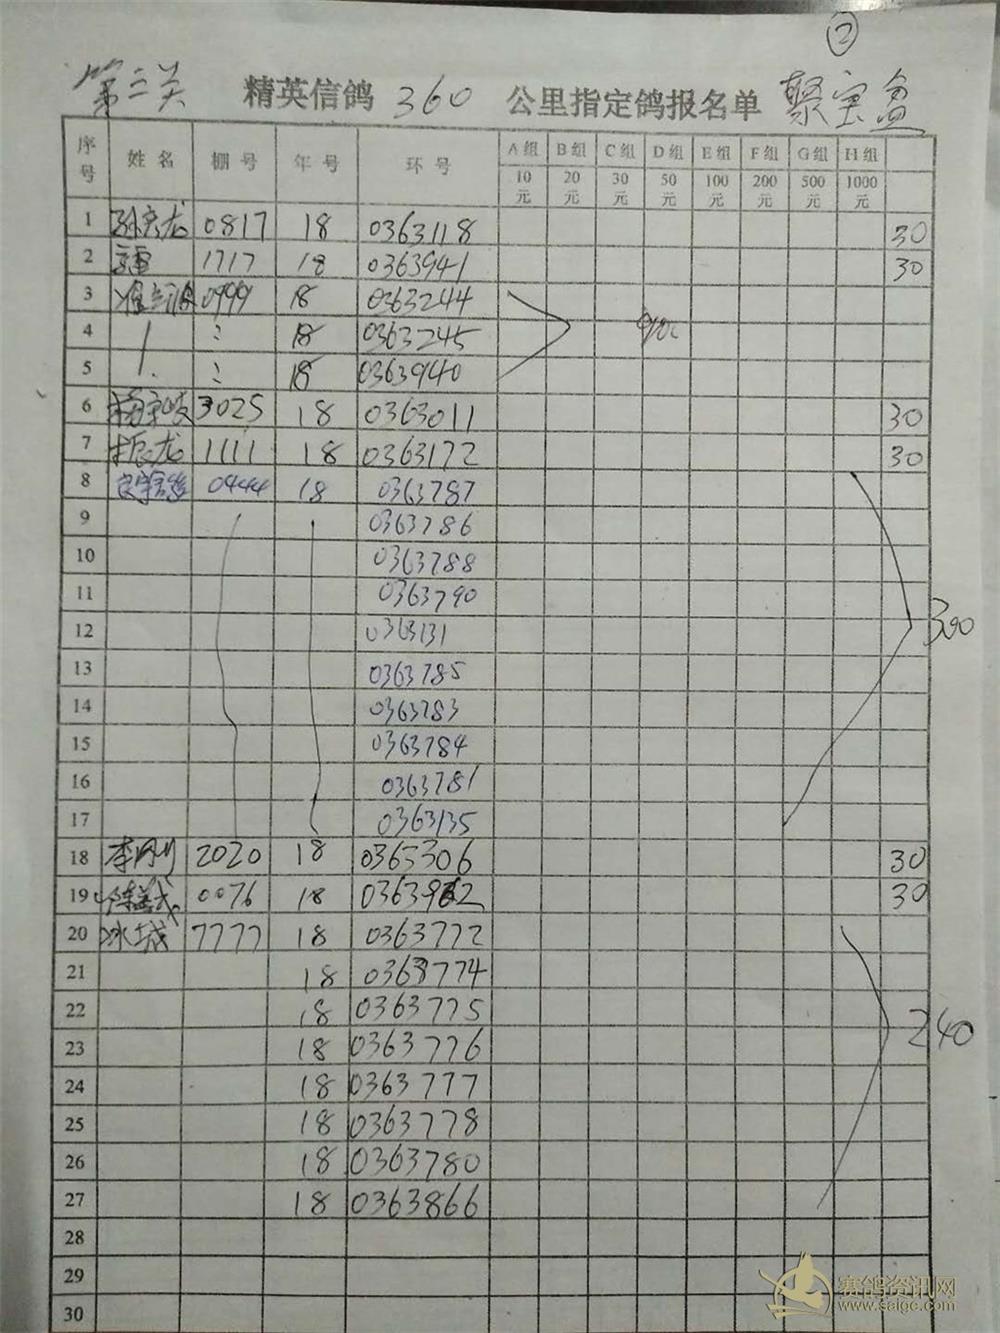 ②
第二关 精英信鸽 360 公里指定鸽报名单 聚宝盆
序号 姓名 棚号 年号 环号 A组 B组 C组 D组 E组 F组 G组 H组
10元 20元 30元 50元 100元 200元 500元 1000元
1 0817 18 0363118 30
2 1717 18 0363941 30
3 0999 18 0363244
4 18 0363245
5 18 0363940
6 3025 18 0363011 30
7 振龙 1111 18 0363172 30
8 0444 18 0363787
9 0363786
10 0363788
11 0363790
12 0363131 300
13 0363785
14 0363783
15 0363784
16 0363781
17 0363135
18 李刚 2020 18 0365306 30
19 0076 18 30
20 冰城 7777 18 0363772
21 18 0363774
22 18 0363775
23 18 0363776 240
24 18 0363777
25 18 0363778
26 18 0363780
27 18 0363866
28
29
30
赛鸽资讯网
www.saigc.com